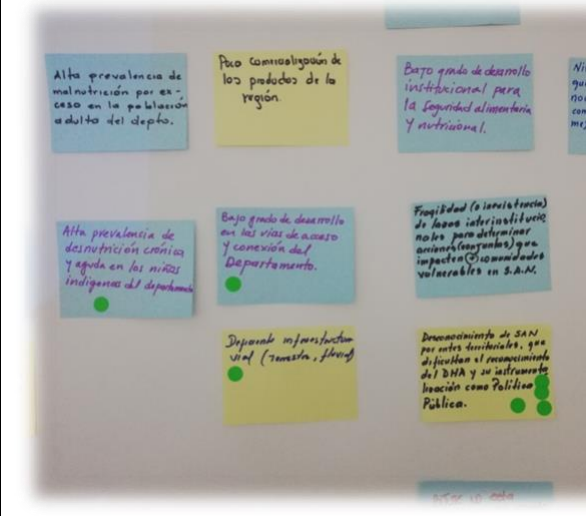 Alta prevalencia de
malnutrición por ex-
ceso en la población
adulta del depto.
Poca comercialización de
los productos de la
región.
Bajo grado de desarrollo
institucional para
la seguridad alimentaria
y nutricional.
Alta prevalencia de
desnutrición crónica
y aguda en los niños
indígenas del departamento
Bajo grado de desarrollo
en las vías de acceso
y conexión del
Departamento.
Fragilidad (o inexistencia)
de lazos interinstitucio
nales para determinar
acciones (conjuntas) que
impacten (+) comunidades
vulnerables en S.A.N.
infraestructura
vial (Terrestre, fluvial)
Desconocimiento de SAN
por entes territoriales, que
dificultan el reconocimiento
del DHA y su instrumenta
lización como Política
Pública.